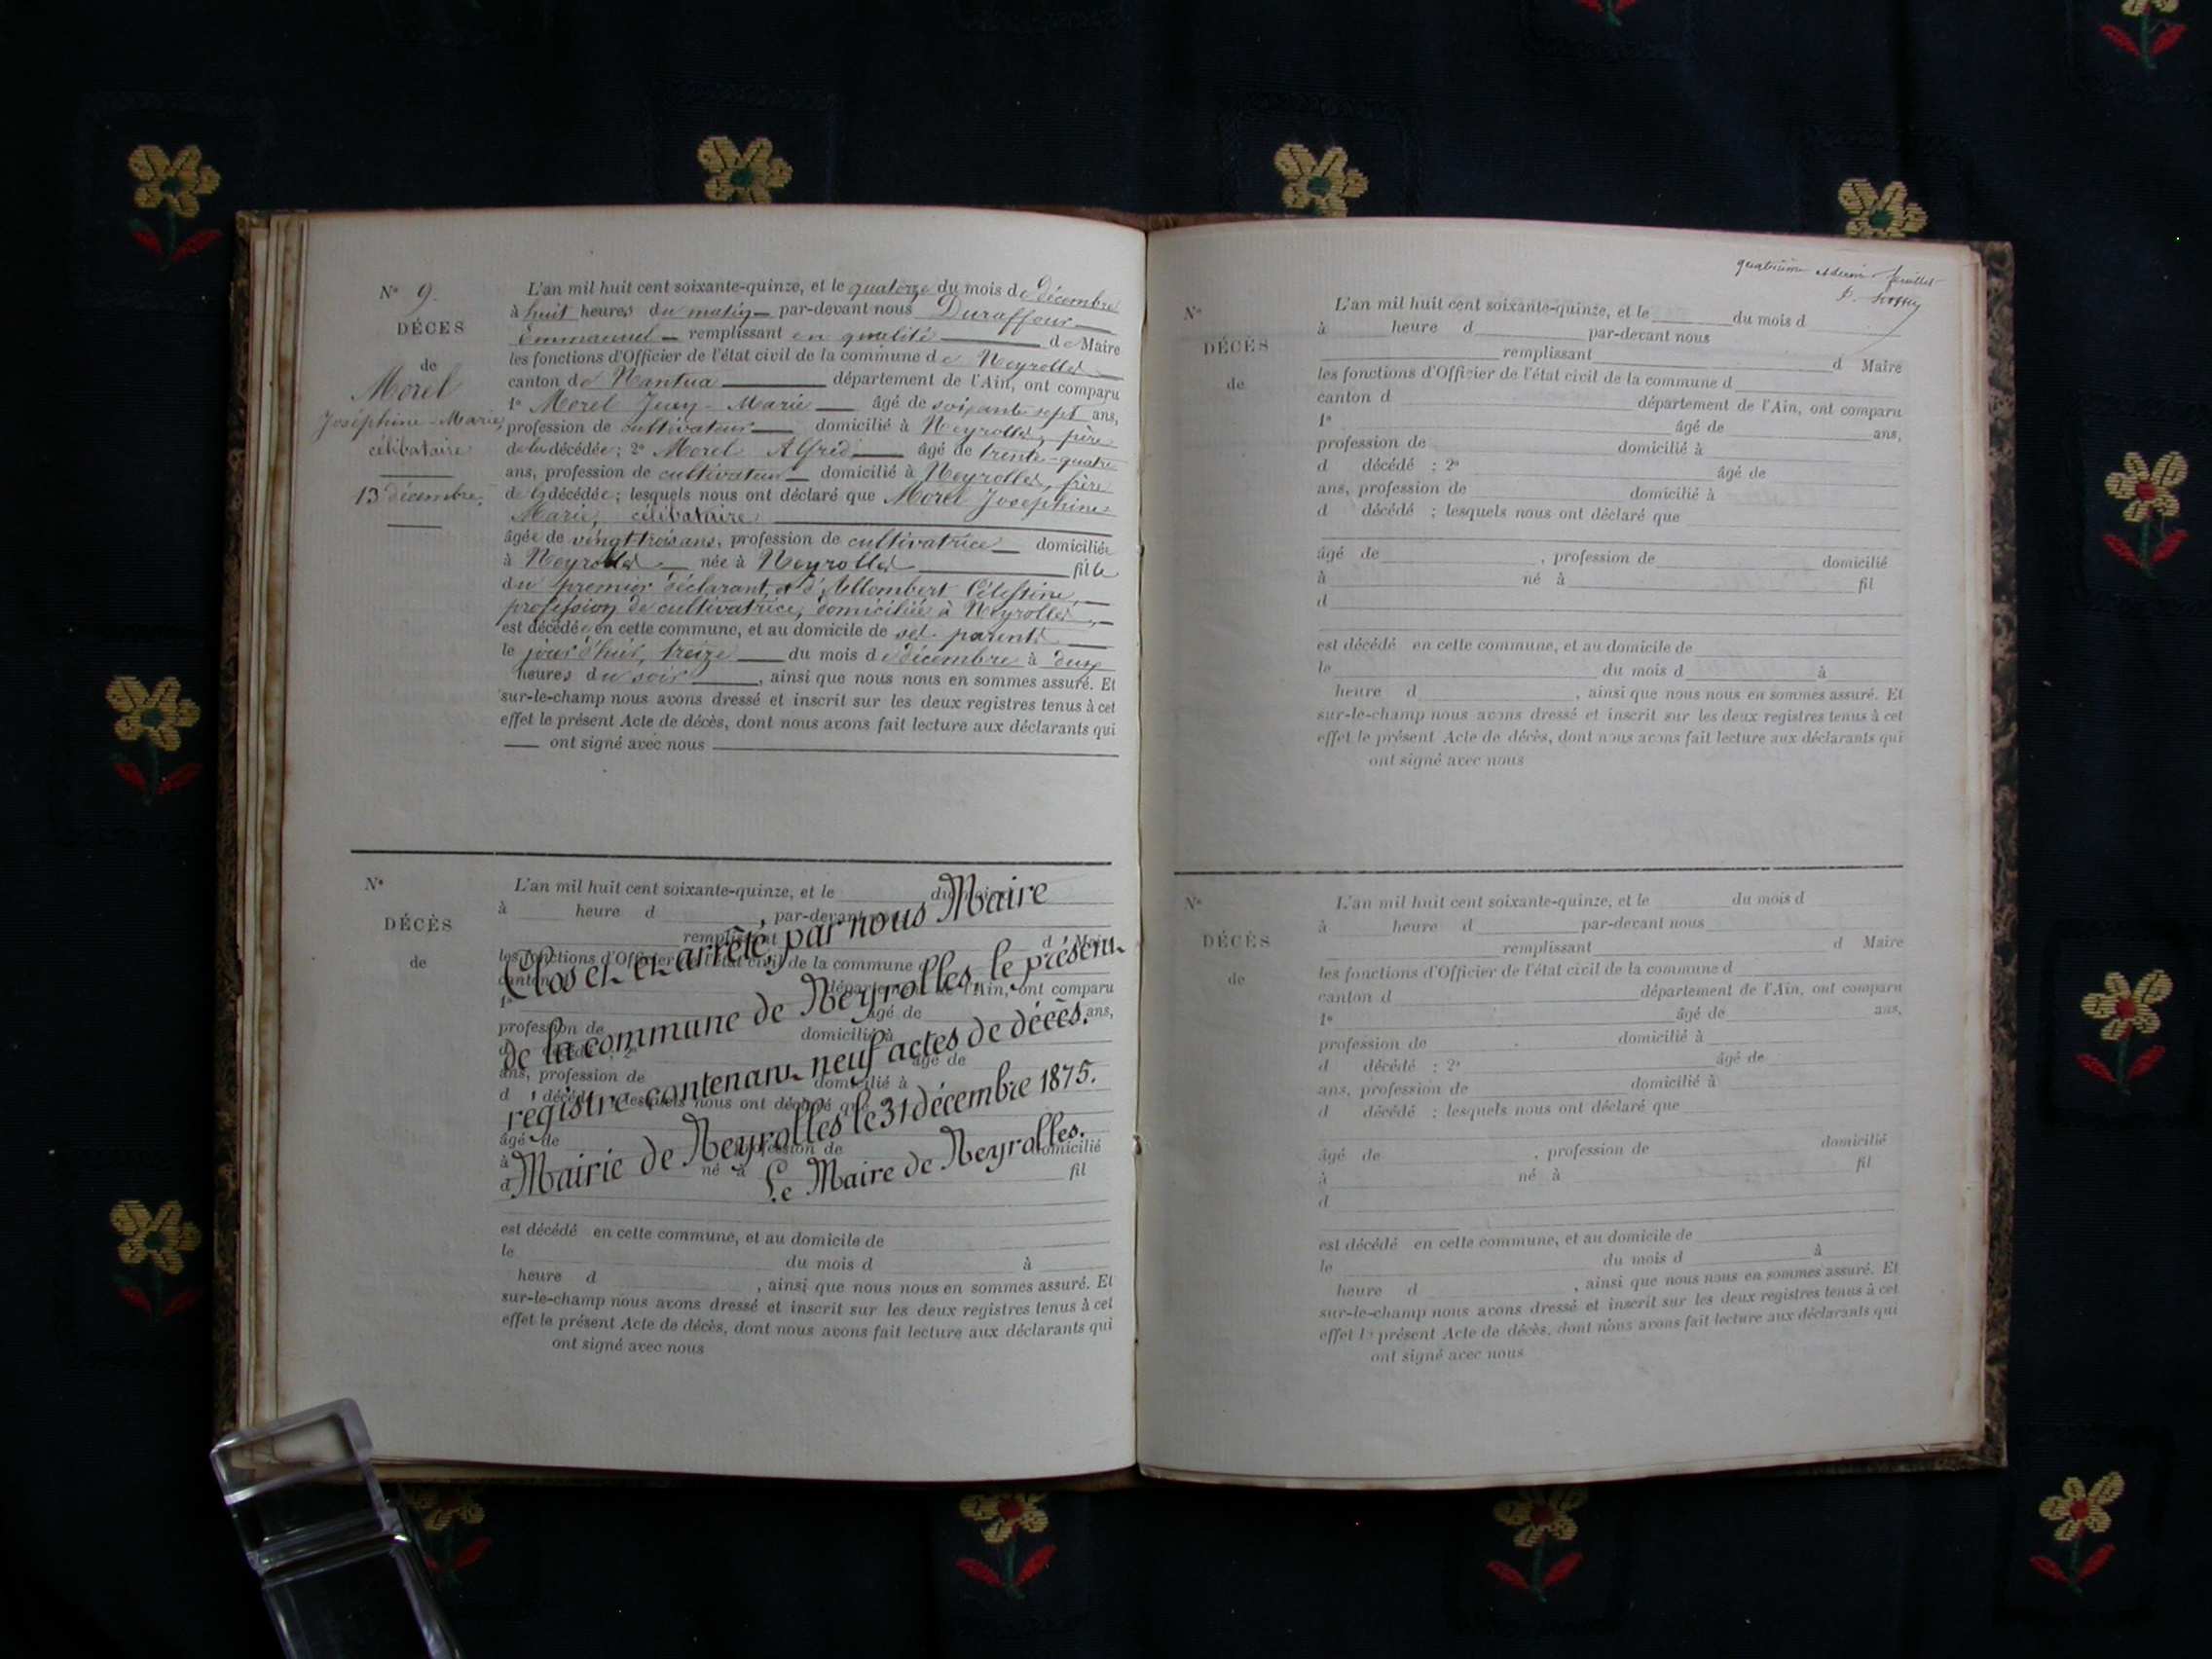 N° 9.
DÉCES
de
Morel
Joséphine-Marie,
célibataire
13 décembre.
L'an mil huit cent soixante-quinze, et le quatorze du mois de décembre
à huit heures du matin par-devant nous Duraffour
Emmanuel remplissant en qualité de Maire
les fonctions d'Officier de l'état civil de la commune de Neyrolles
canton de Nantua département de l'Ain, ont comparu
1° Morel Marie âgé de soixante sept ans,
profession de cultivateur domicilié à Neyrolles, père
de la décédée; 2° Morel Alfred âgé de trente-quatre
ans, profession de cultivateur domicilié à Neyrolles, frère
de la décédée; lesquels nous ont déclaré que Morel Joséphine
Marie, célibataire
âgée de vingt trois ans, profession de cultivatrice domiciliée
à Neyrolles née à Neyrolles fille
du premier déclarant, et d'Allombert Célestine,
profession de cultivatrice, domiciliée à Neyrolles,
est décédée en cette commune, et au domicile de ses parents
le jour d'hier, treize du mois de décembre à
heures du soir, ainsi que nous nous en sommes assuré. Et
sur-le-champ nous avons dressé et inscrit sur les deux registres tenus à cet
effet le présent Acte de décès, dont nous avons fait lecture aux déclarants qui
ont signé avec nous
N°
DÉCÈS
de
L'an mil huit cent soixante-quinze, et le du mois
à heure d , par-devant nous
remplissant d Maire
les fonctions d'Officier de l'état civil de la commune d
canton département de l'Ain, ont comparu
1° âgé de ans,
profession de domicilié à
d décédé 2° âgé de
ans, profession de domicilié à
d décédé lesquels nous ont déclaré que
âgé de profession de domicilié
à né à fil
d
Clos et arrêté, par nous Maire
de la commune de Neyrolles, le présent
régistre contenant neuf actes de décès.
Mairie de Neyrolles le 31 décembre 1875.
Le Maire de Neyrolles.
est décédé en cette commune, et au domicile de
le du mois d à
heure d , ainsi que nous nous en sommes assuré. Et
sur-le-champ nous avons dressé et inscrit sur les deux registres tenus à cet
effet le présent Acte de décès, dont nous avons fait lecture aux déclarants qui
ont signé avec nous
quatrième feuillet
N°
DÉCÈS
de
L'an mil huit cent soixante-quinze, et le du mois d
à heure d par-devant nous
remplissant d Maire
les fonctions d'Officier de l'état civil de la commune d
canton d département de l'Ain, ont comparu
1° âgé de ans,
profession de domicilié à
d décédé : 2° âgé de
ans, profession de domicilié à
d décédé ; lesquels nous ont déclaré que
âgé de , profession de domicilié
à né à fil
d
est décédé en cette commune, et au domicile de
le du mois d à
heure d , ainsi que nous nous en sommes assuré. Et
sur-le-champ nous avons dressé et inscrit sur les deux registres tenus à cet
effet le présent Acte de décès, dont nous avons fait lecture aux déclarants qui
ont signé avec nous
N°
DÉCÈS
de
L'an mil huit cent soixante-quinze, et le du mois d
à heure d par-devant nous
remplissant d Maire
les fonctions d'Officier de l'état civil de la commune d
canton d département de l'Ain, ont comparu
1° âgé de ans,
profession de domicilié à
d décédé : 2° âgé de
ans, profession de domicilié à
d décédé ; lesquels nous ont déclaré que
âgé de , profession de domicilié
à né à fil
d
est décédé en cette commune, et au domicile de
le du mois d à
heure d , ainsi que nous nous en sommes assuré. Et
sur-le-champ nous avons dressé et inscrit sur les deux registres tenus à cet
effet le présent Acte de décès, dont nous avons fait lecture aux déclarants qui
ont signé avec nous